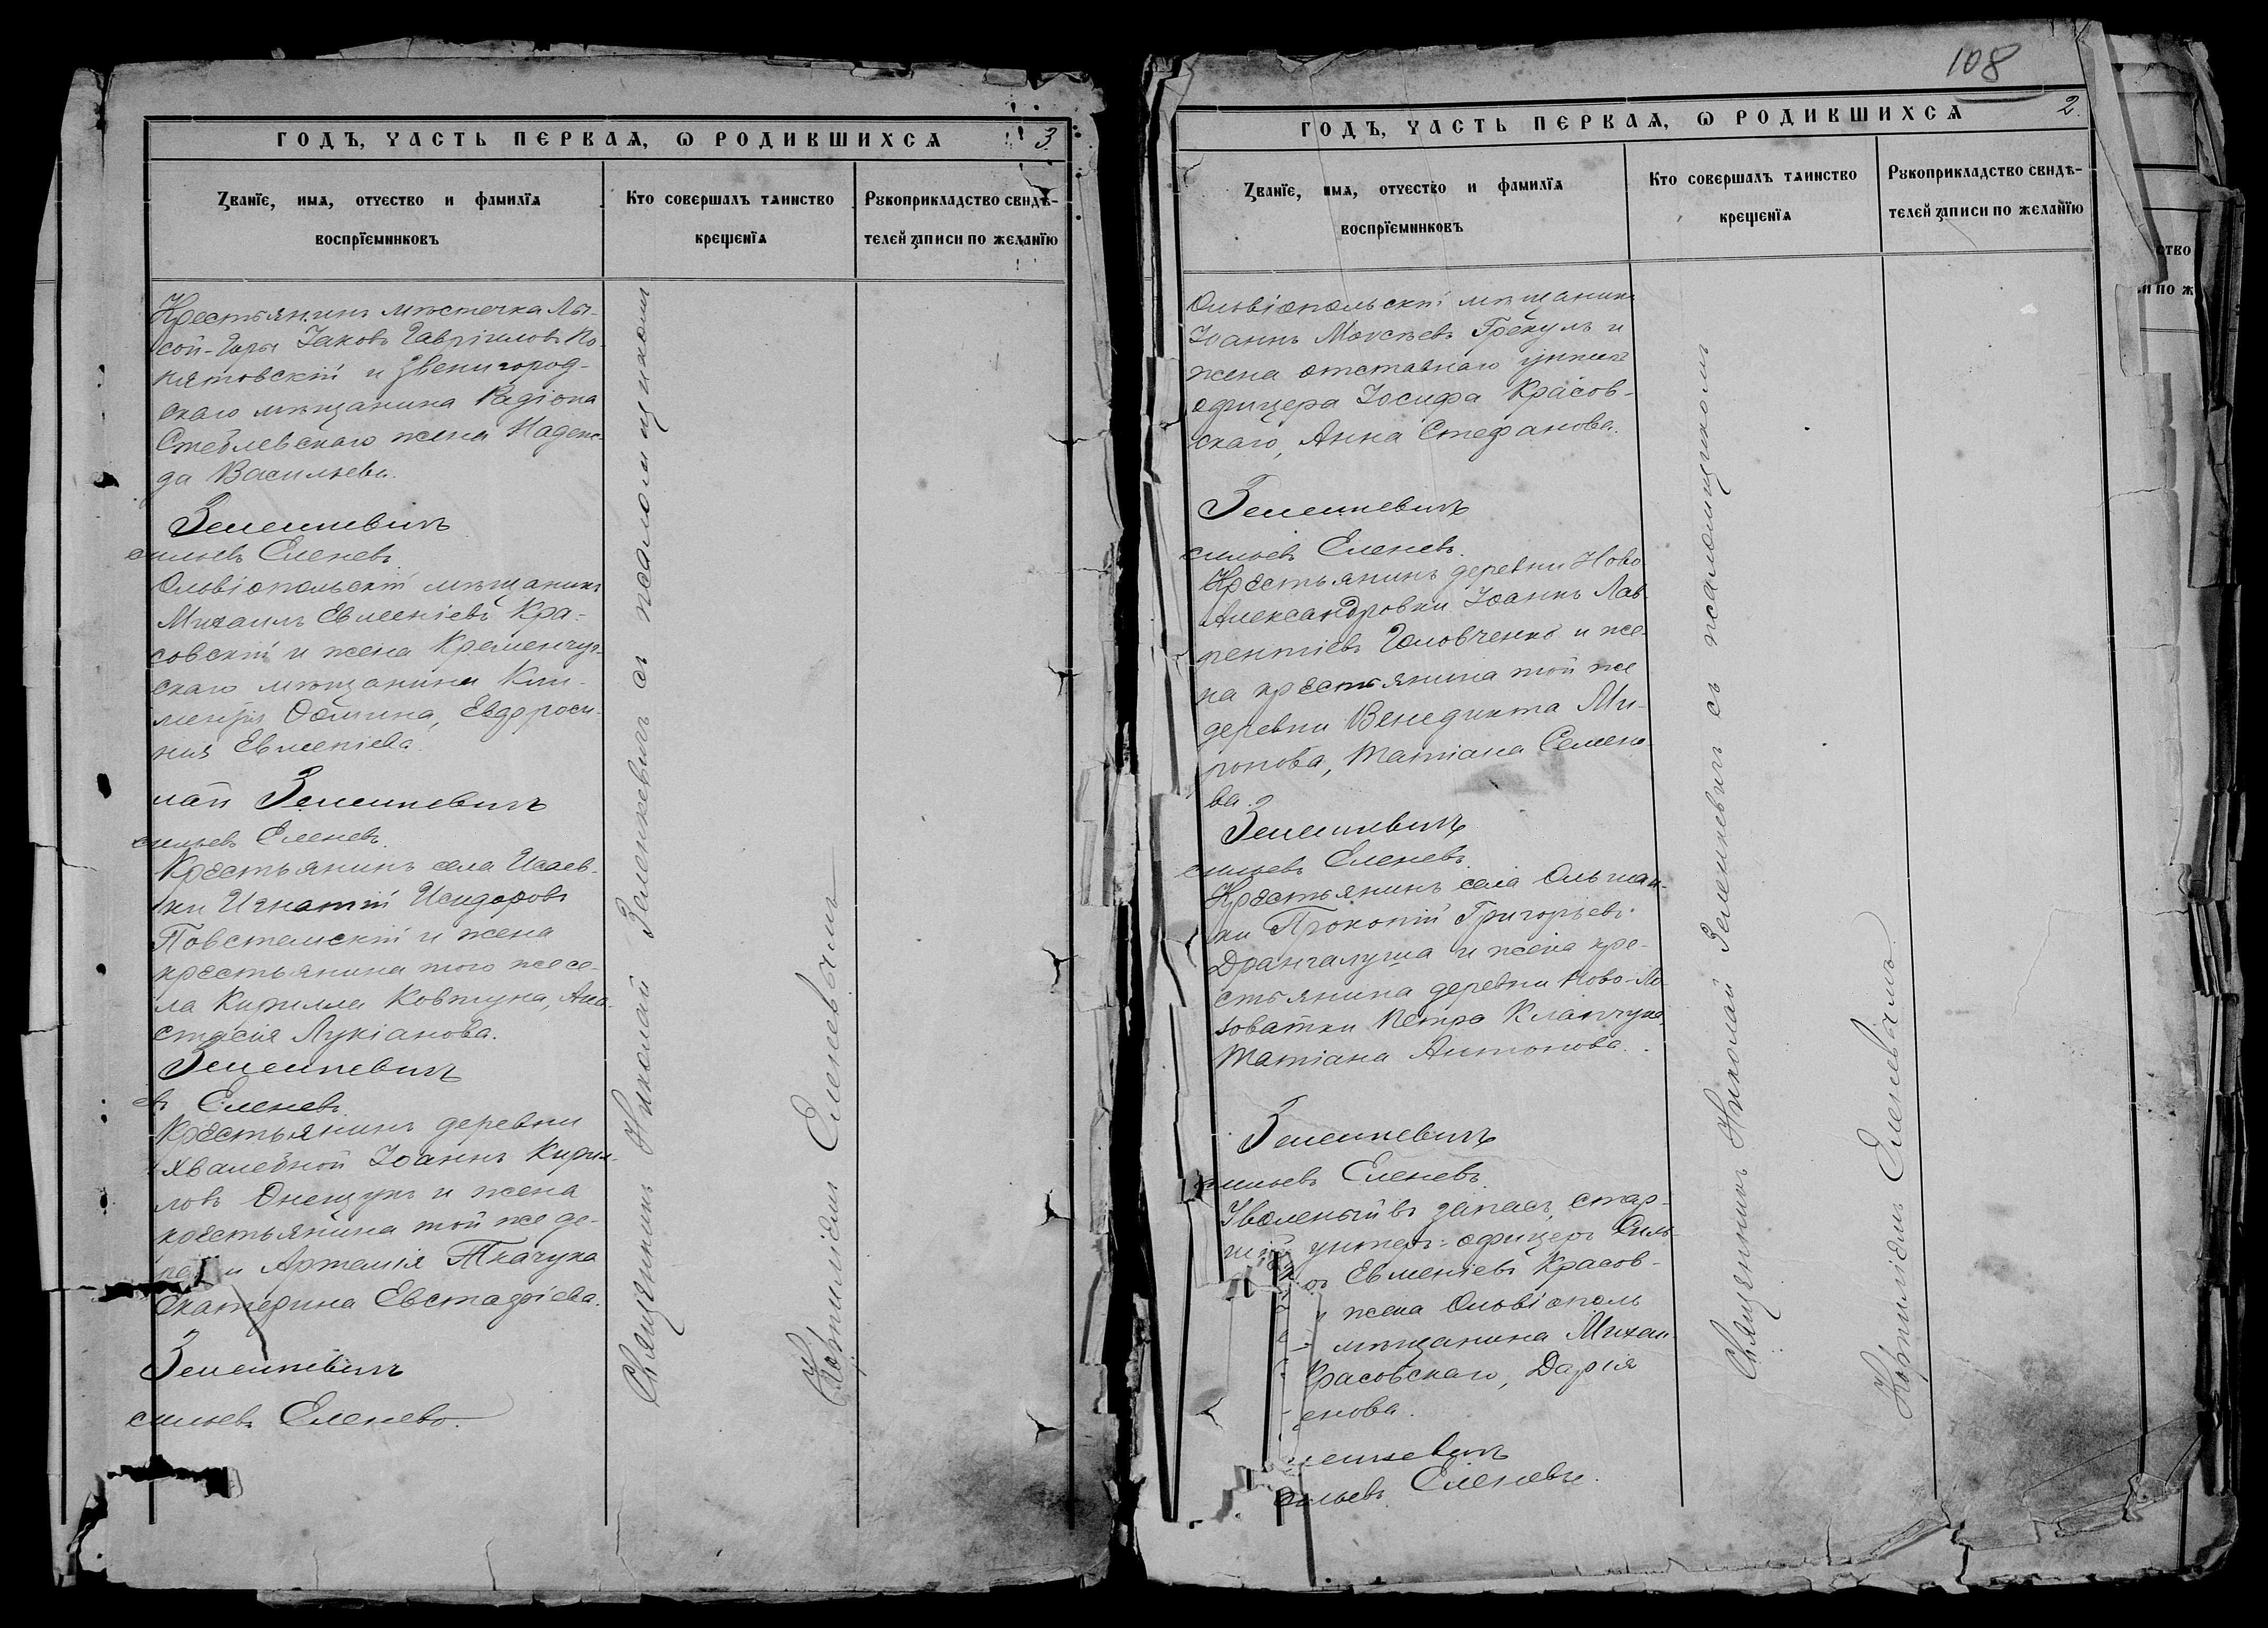 ГОДЪ, ЧАСТЬ ПЕРВАѦ, Ѡ РОДИВШИХСѦ 3
Званїе, имѧ, отчество и фамилїѧ
воспрїемниковъ
Кто совершалъ таинство
крещенїѧ
Рꙋкоприкладство свидѣ-
телей записи по желанїю
Крестьянинъ мѣстечка Лы-
сой-Горы Іаковъ Гавріиловъ По-
нятовскій и Звенигород-
скаго мѣщанина Родіона
Стеблевскаго жена Надеж-
да Васильева.
Зелинкевичъ
сильевъ Еленевъ.
Ольвіопольскій мѣщанинъ
Михаилъ Евменіевъ Кра-
совскій и жена Кременчуг-
скаго мѣщанина Кли-
мента Евдороси-
нія Евменіева.
лай Зелинкевичъ
сильевъ Еленевъ.
Крестьянинъ села Исаев-
ки Игнатій Исидоровъ
и жена
крестьянина того же се-
ла Кирилла Ковтуна, Ана-
стасія Лукіанова.
Зелинкевичъ
евъ Еленевъ.
Крестьянинъ деревни
Хвалебной Іоаннъ Кирил-
ловъ Онещукъ и жена
крестьянина той же де-
и Артемія Ткачука
Екатерина Евстафіева.
Зелинкевичъ
сильевъ Еленевъ.
Священникъ Николай Зеленкевичъ съ псаломщикомъ
Корниліемъ Еленевымъ
108
ГОДЪ, ЧАСТЬ ПЕРВАѦ, Ѡ РОДИВШИХСѦ 2.
Званїе, имѧ, отчество и фамилїѧ
воспрїемниковъ
Кто совершалъ таинство
крещенїѧ
Рꙋкоприкладство свидѣ-
телей записи по желанїю
Ольвіопольскій мѣщанинъ
Іоаннъ Моисѣевъ Грекулъ и
жена отставнаго унтеръ
офицера Іосифа Красов-
скаго, Анна Стефанова.
Зелинкевичъ
сильевъ Еленевъ.
Крестьянинъ деревни Ново
Александровки Іоаннъ Лав-
рентіевъ Головченко и же-
на крестьянина той же
деревни Венедикта Ми-
ронова, Татіана Семено-
ва.
Зелинкевичъ
сильевъ Еленевъ.
Крестьянинъ села Ольшан-
ки Прокопій Григорьевъ
Драгалуша и жена кре-
стьянина деревни Ново-Ло-
зоватки Петра Кланчука,
Татіана Антонова.
Зелинкевичъ
сильевъ Еленевъ.
Уволеный въ запасъ, стар-
шій унтеръ-офицеръ Филь-
Евменіевъ Красов-
жена Ольвіополь
мѣщанина Михаи-
Красовскаго, Дарія
енова.
ленкевичъ
сильевъ Еленевъ.
Священникъ Николай Зелинкевичъ съ псаломщикомъ
Корниліемъ Еленевымъ.
ство
и по ж